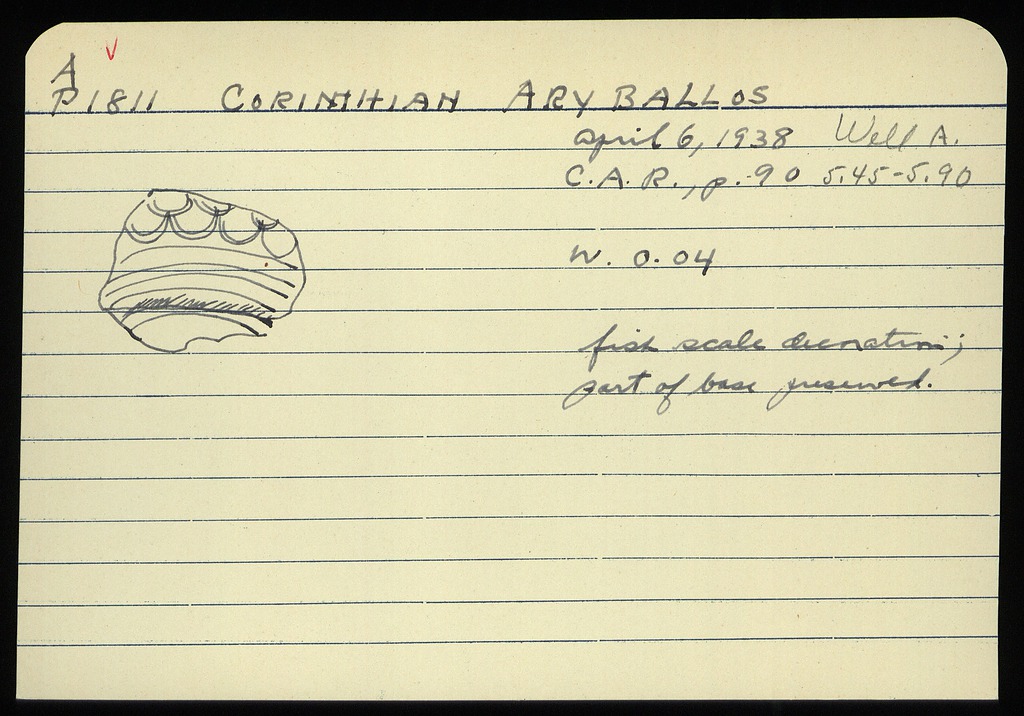 A
P1811 CORINTHIAN ARYBALLOS
April 6, 1938 Well A.
C.A.R., p. 90 5.45-5.90
W. 0.04
fish scale decoration;
part of base preserved.